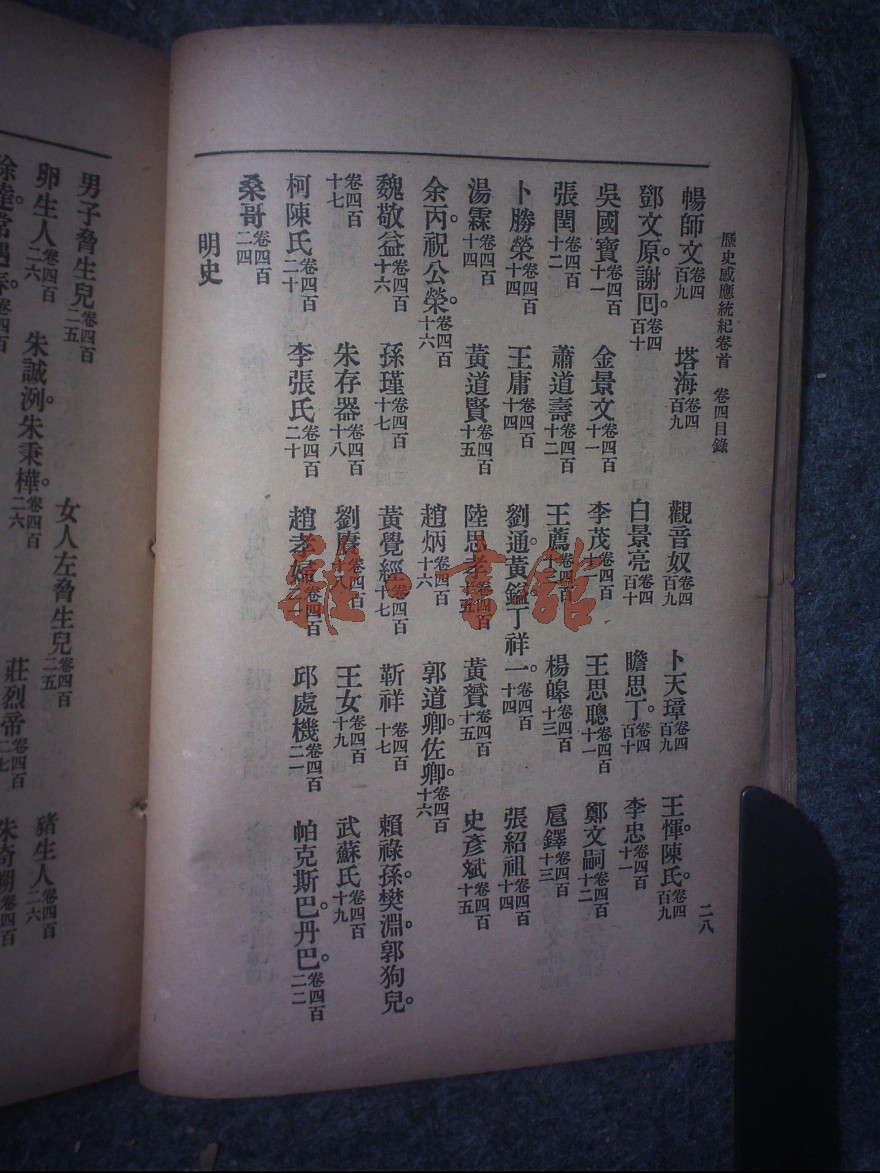 歷史感應統紀卷首 卷四目錄 二八
暢師文卷四百九 塔海卷四百九 觀音奴卷四百九 卜天璋卷四百九 王惲。陳氏。卷四百九
鄧文原。謝囘。卷四百十 白景亮卷四百十 瞻思丁。卷四百十 李忠卷四百十一
吳國寶卷四百十一 金景文卷四百十一 李茂卷四百十一 王思聰卷四百十一 鄭文嗣卷四百十二
張閏卷四百十二 蕭道壽卷四百十二 王薦卷四百十三 楊皞卷四百十三 扈鐸卷四百十三
卜勝榮卷四百十四 王庸卷四百十四 劉通。黃鎰。丁祥一。卷四百十四 張紹祖卷四百十四
湯霖卷四百十四 黃道賢卷四百十五 陸思孝卷四百十五 黃贇卷四百十五 史彥斌卷四百十五
余丙。祝公榮。卷四百十六 趙炳卷四百十六 郭道卿。佐卿。卷四百十六
魏敬益卷四百十六 孫瑾卷四百十七 黃覺經卷四百十七 靳祥卷四百十七 賴祿孫。樊淵。郭狗兒。
卷四百十七 朱存器卷四百十八 劉廌卷四百十八 王女卷四百十九 武蘇氏卷四百十九
柯陳氏卷四百二十 李張氏卷四百二十 趙孝婦卷四百二一 邱處機卷四百二一 帕克斯巴。丹巴。卷四百二二
桑哥卷四百二四
明史
男子脅生兒卷四百二五 女人左脅生兒卷四百二五 豬生人卷四百二六
卵生人卷四百二六 朱誠洌。朱秉㰃。卷四百二六 莊烈帝卷四百二七
徐達。常遇春。卷四百